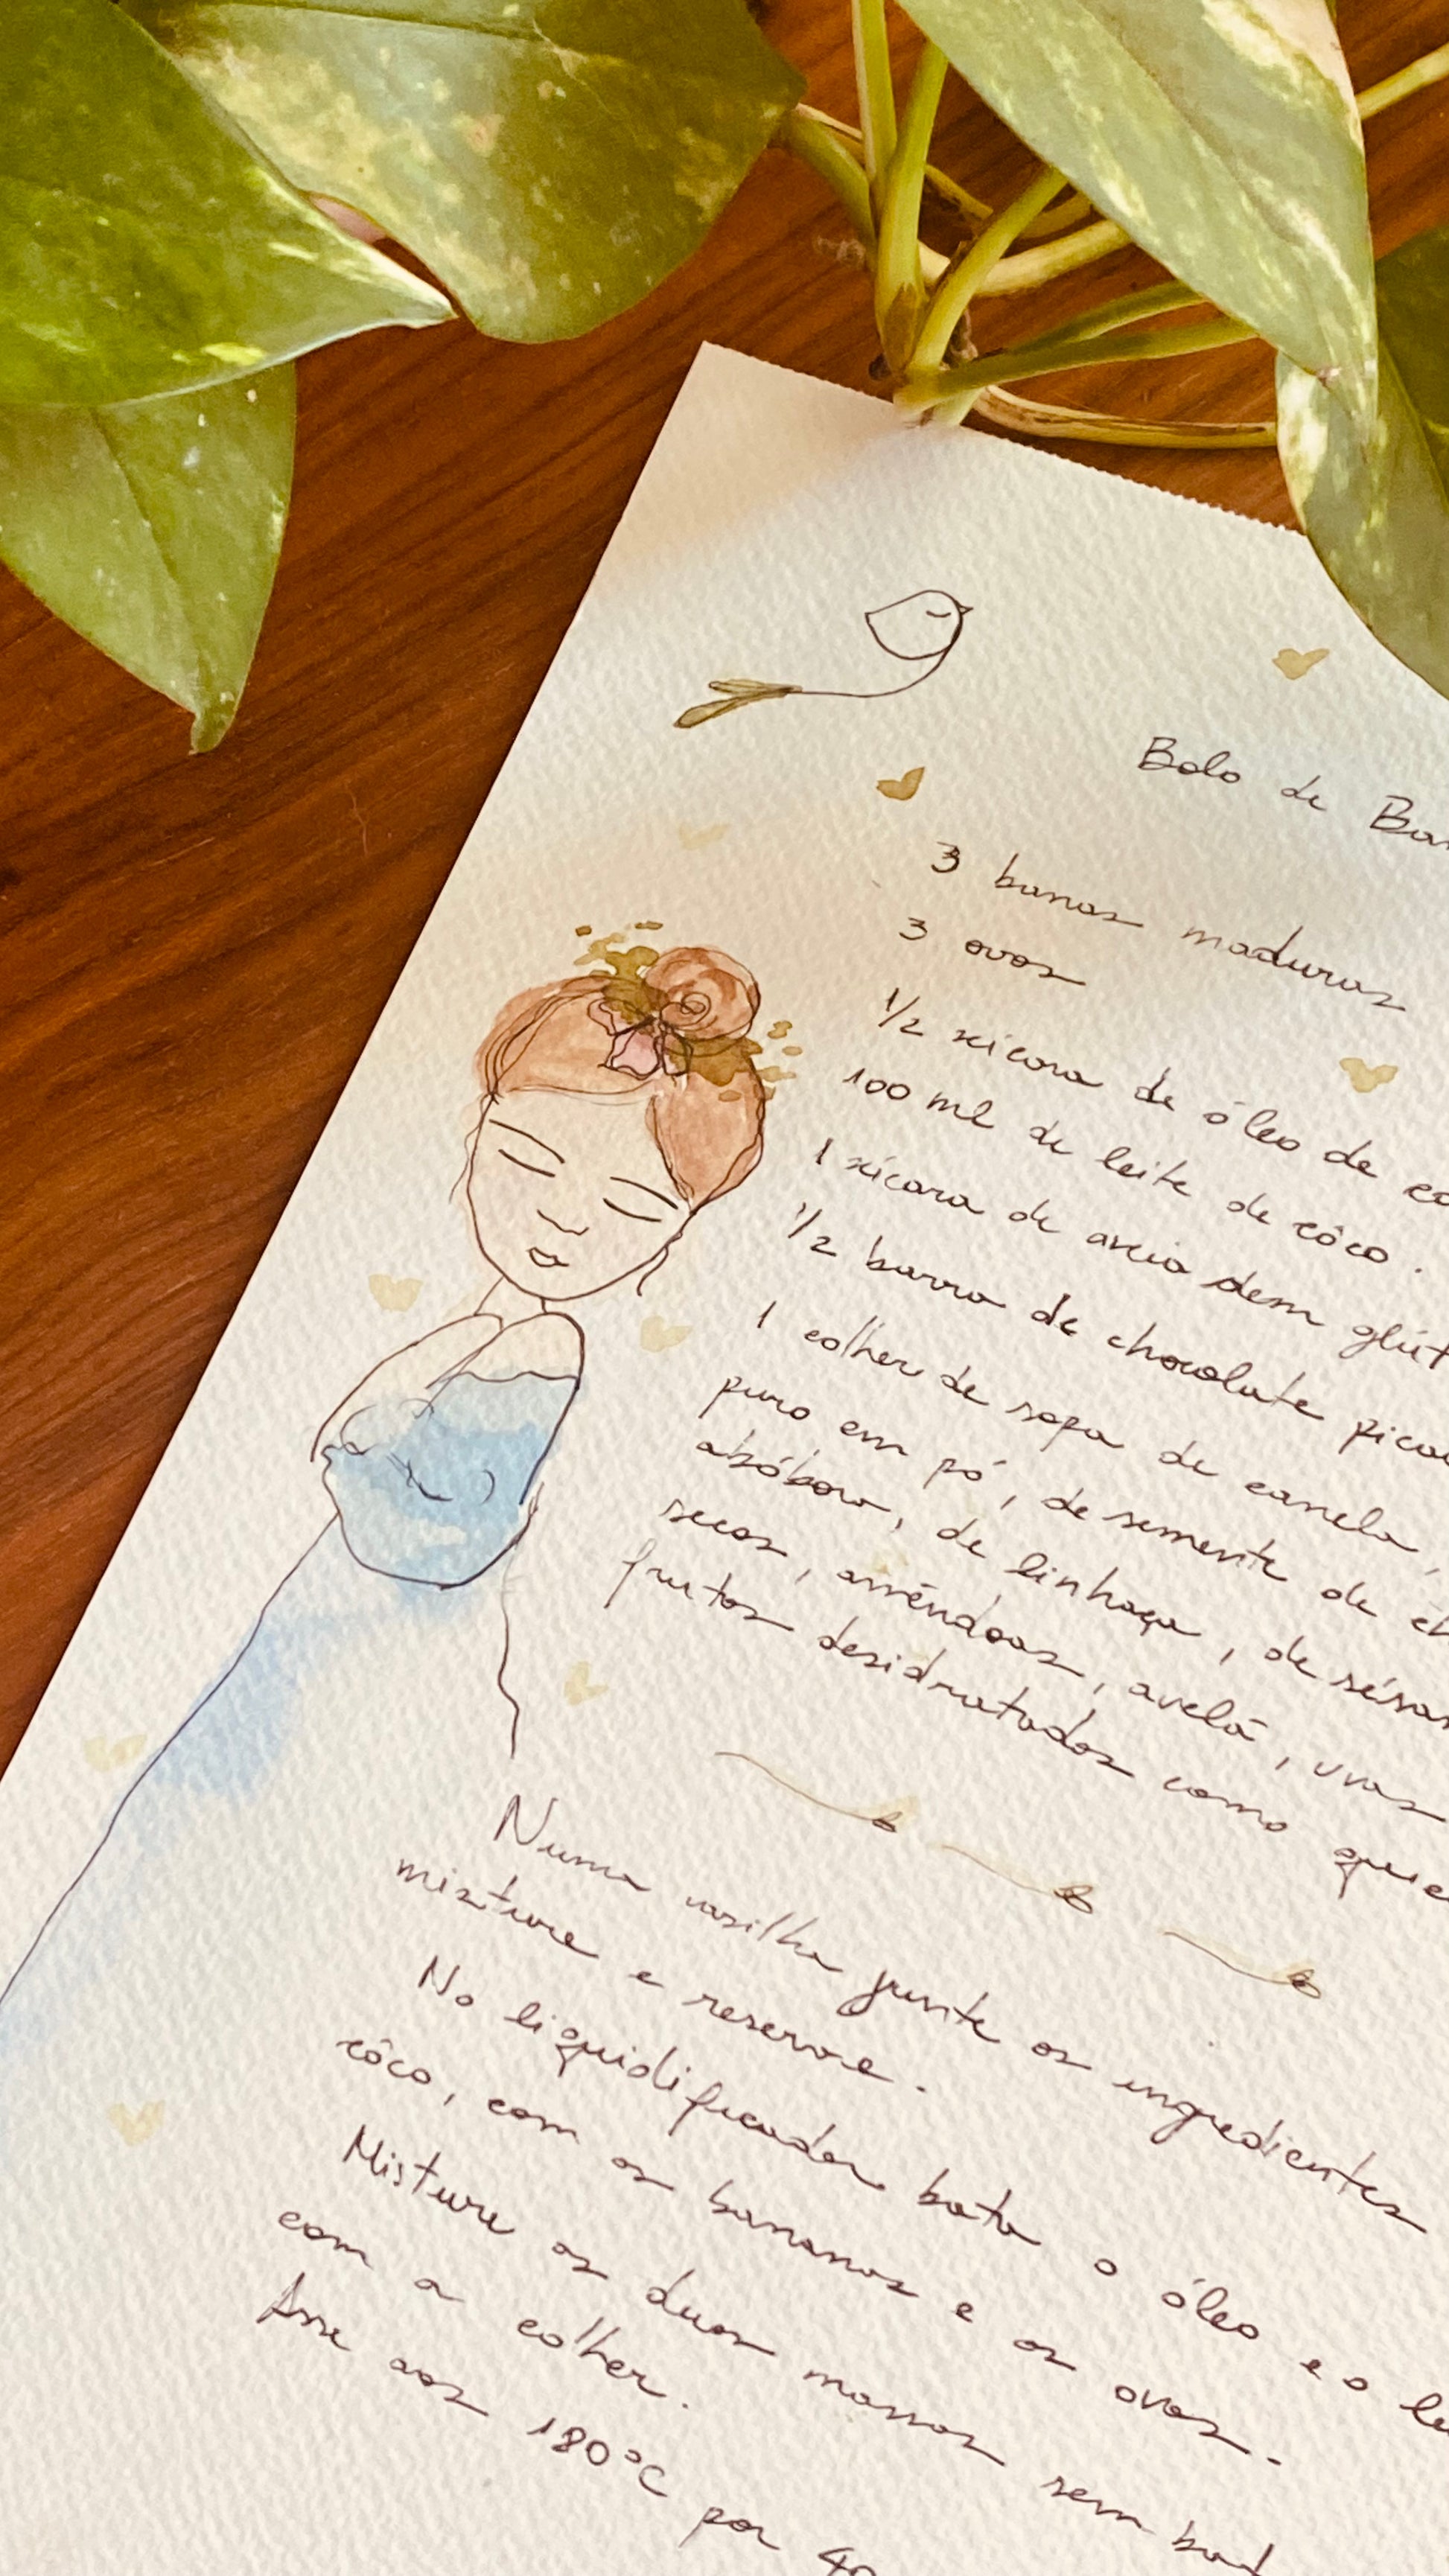 Bolo de Ban
3 banas maduras
3 ovos
1/2 xícara de óleo de co
100 ml de leite de côco.
1 xícara de aveia dem glút
1/2 barra de chocolate pica
1 colher de sopa de canela,
puro em pó, de semente de ch
abóbora, de linhaça, de sésam
secos, amêndoas, avelã, uvas
frutos desidratados como quise
Numa vasilha junte os ingredientes
misture e reserve.
No liquidificador bata o óleo e o le
côco, com as bananas e os ovos.
Misture as duas massas sem bat
com a colher.
Asse aos 180°C por 40